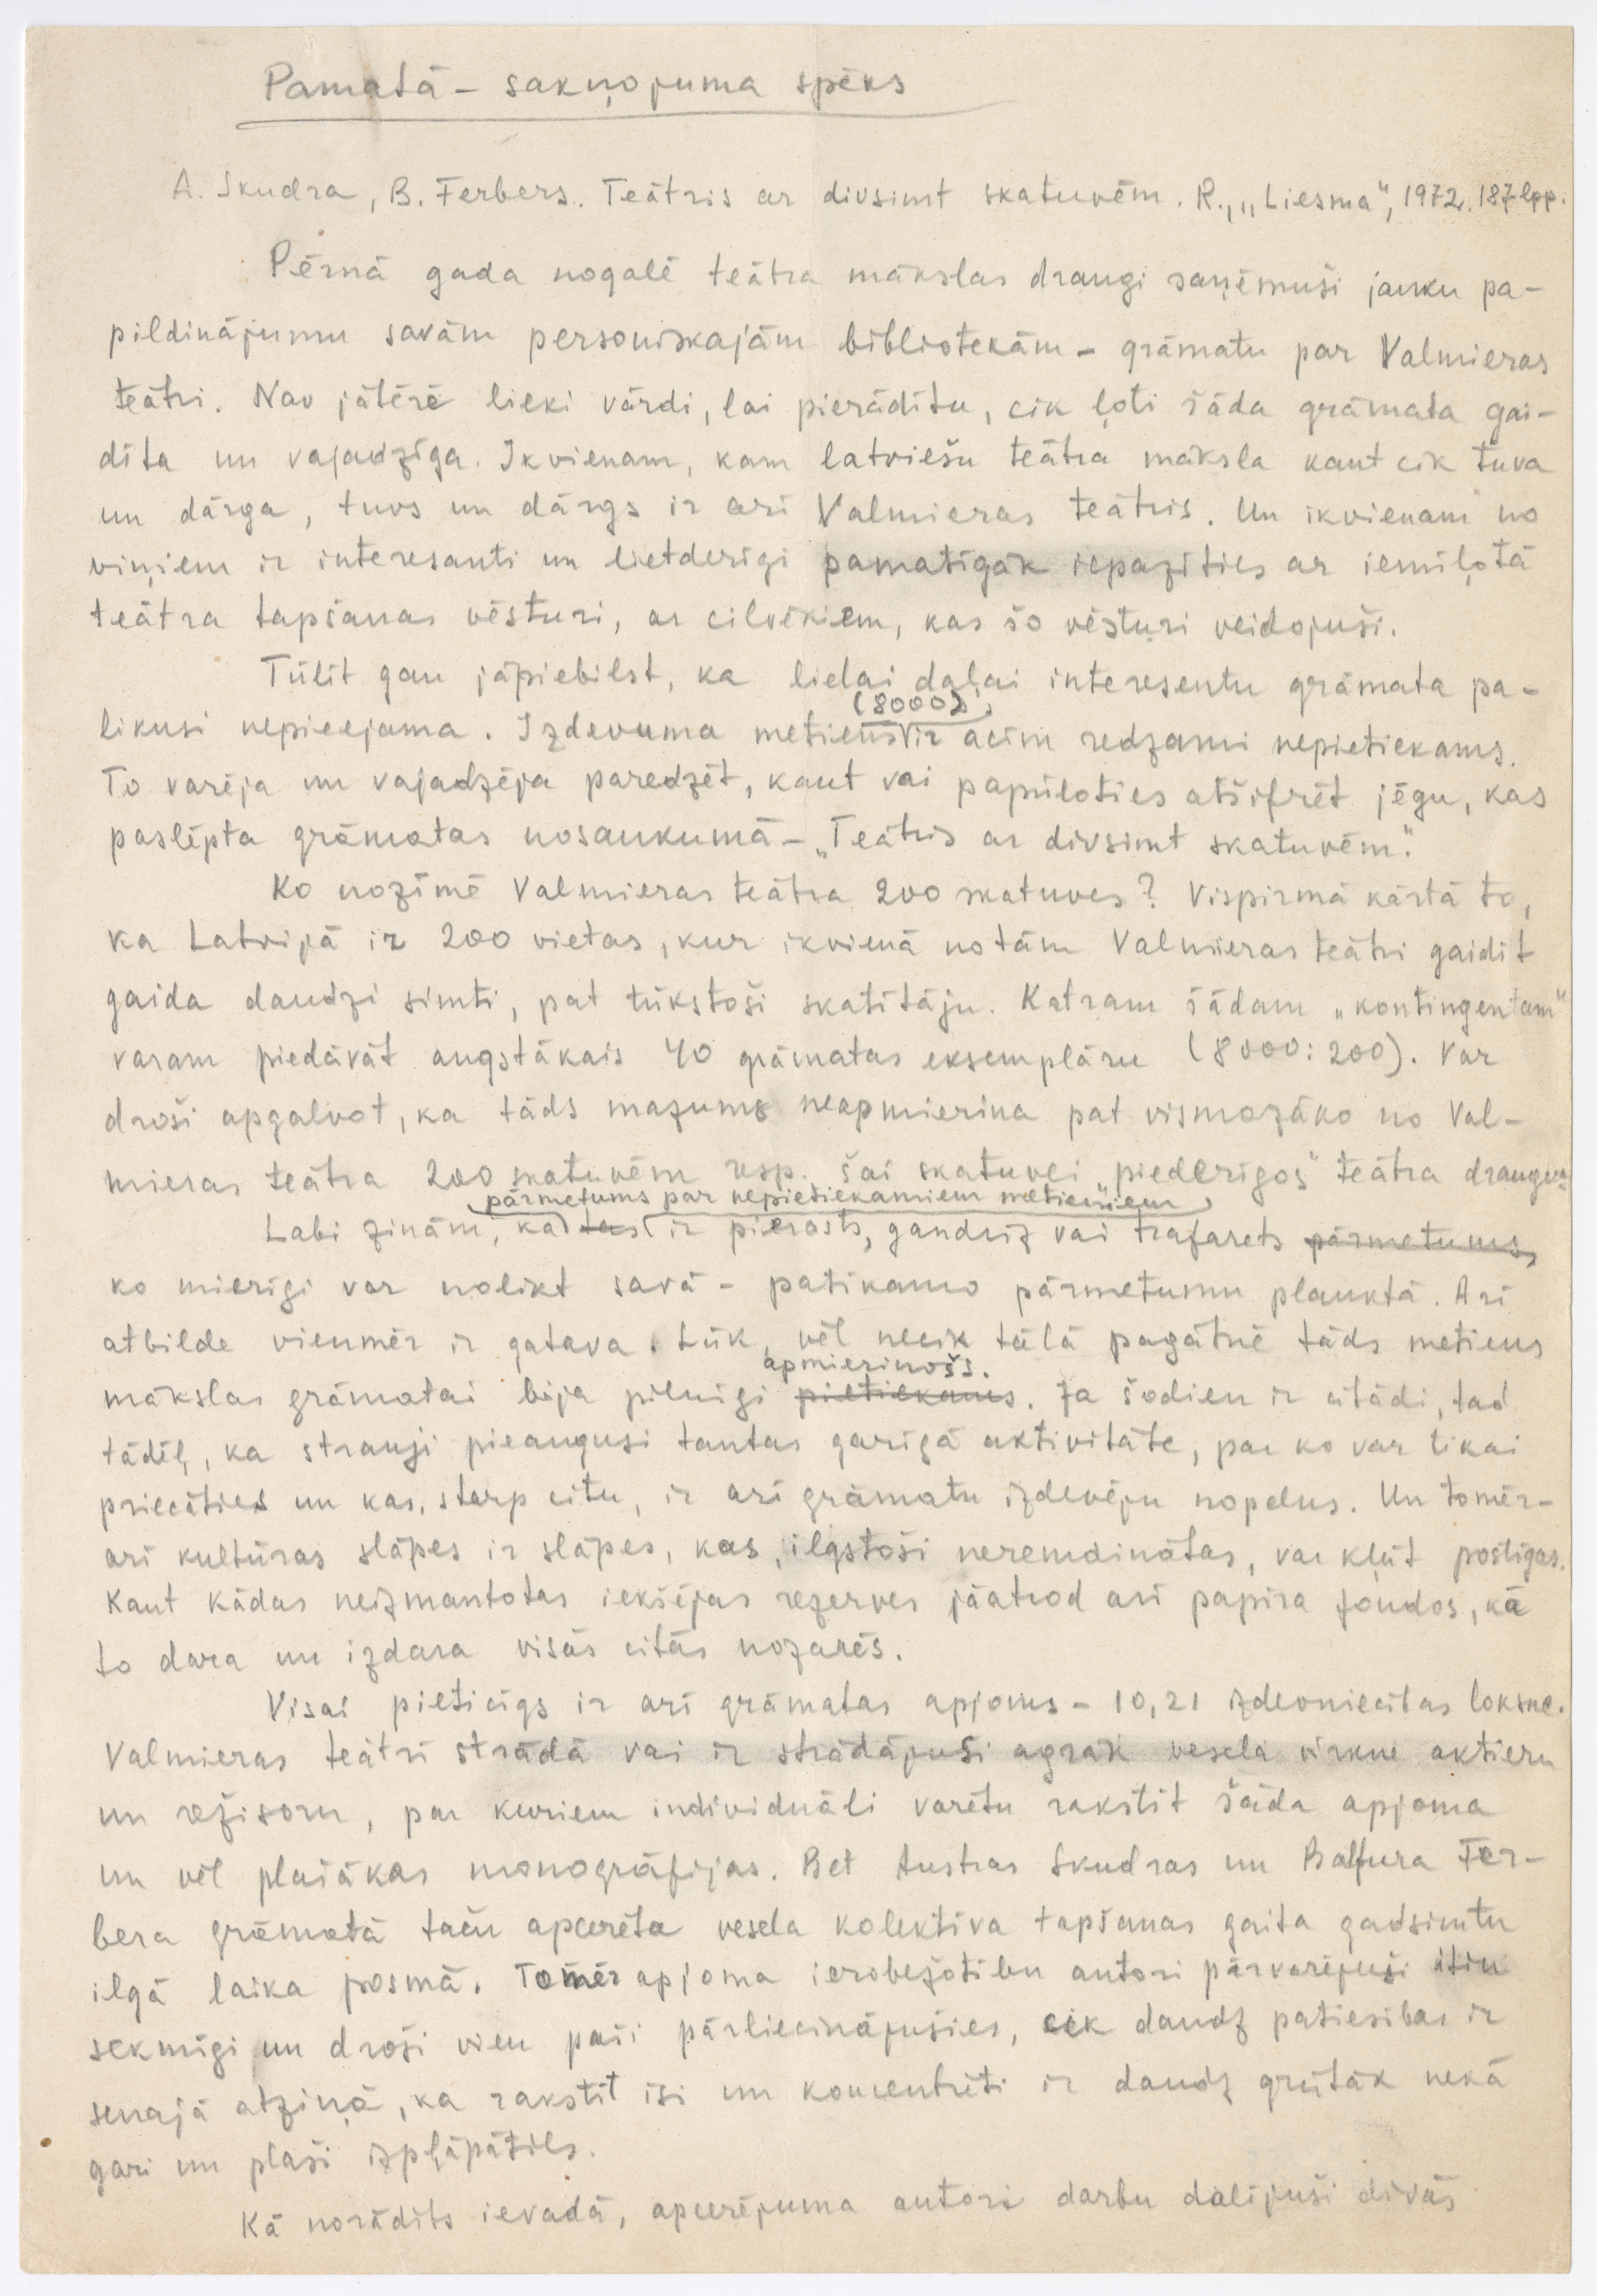 Pamatā – sakņojuma spēks
A. Skudra, B. Ferbers. Teātris ar divsimt skatuvēm. R., „Liesma”, 1972. 187 lpp.
Pērnā gada nogalē teātra mākslas draugi saņēmuši jauku pa-
pildinājumu savām personiskajām bibliotekām – grāmatu par Valmieras
teātri. Nav jātērē lieki vārdi, lai pierādītu, cik ļoti šāda grāmata gai-
dīta un vajadzīga. Ikvienam, kam latviešu teātra māksla kaut cik tuva
un dārga, tuvs un dārgs ir arī Valmieras teātris. Un ikvienam no
viņiem ir interesanti un lietderīgi pamatīgāk iepazīties ar iemīļotā
teātra tapšanas vēsturi, ar cilvēkiem, kas šo vēsturi veidojuši.
Tūlīt gan jāpiebilst, ka lielai daļai interesentu grāmata pa-
likusi nepieejama. Izdevuma metiens (8000) ir acīm redzami nepietiekams.
To varēja un vajadzēja paredzēt, kaut vai papūloties atšifrēt jēgu, kas
paslēpta grāmatas nosaukumā – „Teātris ar divsimt skatuvēm”.
Ko nozīmē Valmieras teātra 200 skatuves? Vispirmā kārtā to,
ka Latvijā ir 200 vietas, kur ikvienā no tām Valmieras teātri gaidīt
gaida daudzi simti, pat tūkstoši skatītāju. Katram šādam „kontingentam”
varam piedāvāt augstākais 40 grāmatas eksemplāru (8000:200). Var
droši apgalvot, ka tāds mazums neapmierina pat vismazāko no Val-
mieras teātra 200 skatuvēm resp. šai skatuvei „piederīgos” teātra draugus.
Labi zinām, ka tas pārmetums par nepietiekamiem metieniem ir pierasts, gandrīz vai trafarets pārmetums,
ko mierīgi var nolikt savā – patīkamo pārmetumu plauktā. Arī
atbilde vienmēr ir gatava. Lūk, vēl necik tālā pagātnē tāds metiens
mākslas grāmatai bija pilnīgi pietiekams apmierinošs. Ja šodien ir citādi, tad
tādēļ, ka strauji pieaugusi tautas garīgā aktivitāte, par ko var tikai
priecāties un kas, starp citu, ir arī grāmatu izdevēju nopelns. Un tomēr –
arī kultūras slāpes ir slāpes, kas, ilgstoši neremdinātas, var kļūt postīgas.
Kaut kādas neizmantotas iekšējas rezerves jāatrod arī papīra fondos, kā
to dara un izdara visās citās nozarēs.
Visai pieticīgs ir arī grāmatas apjoms – 10,21 izdevniecības loksne.
Valmieras teātrī strādā vai ir strādājuši agrāk vesela virkne aktieru
un režisoru, par kuriem individuāli varētu rakstīt šāda apjoma
un vēl plašākas monogrāfijas. Bet Austras Skudras un Balfura Fer-
bera grāmatā taču apcerēta vesela kolektīva tapšanas gaita gadsimtu
ilgā laika posmā. Tomēr apjoma ierobežotību autori pārvarējuši itin
sekmīgi un droši vien paši pārliecinājušies, cik daudz patiesības ir
senajā atziņā, ka rakstīt īsi un koncentrēti ir daudz grūtāk nekā
gari un plaši izpļāpāties.
Kā norādīts ievadā, apcerējuma autori darbu dalījuši divās